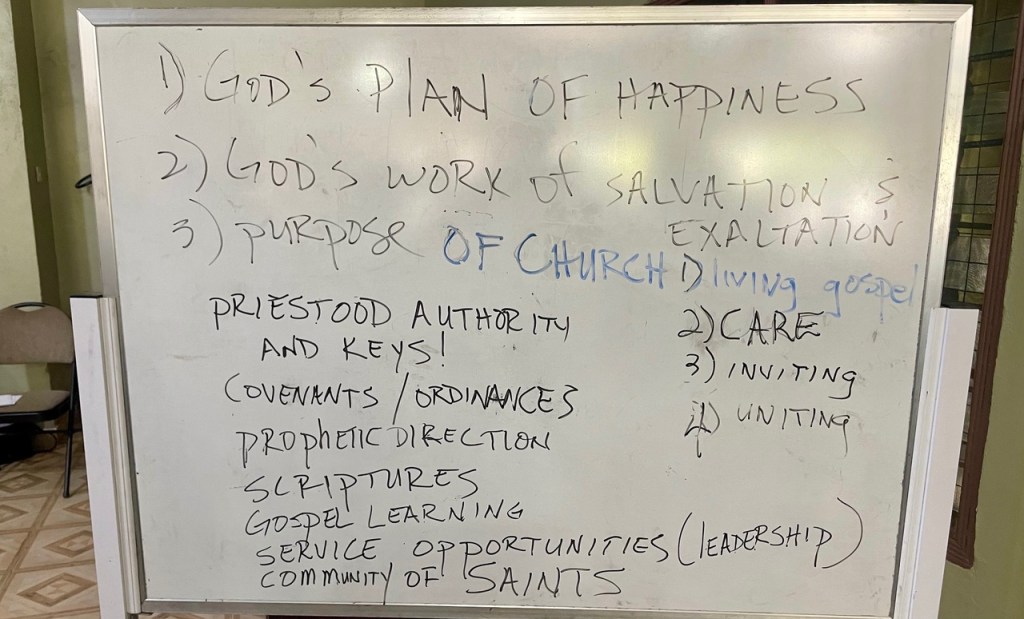 1) GOD'S PLAN OF HAPPINESS
2) GOD'S WORK of SALVATION &
EXALTATION
3) PURPOSE OF CHURCH
1) living gospel
2) CARE
3) INVITING
4) UNITING
PRIESTOOD AUTHORITY
AND KEYS!
COVENANTS / ORDINANCES
PROPHETIC DIRECTION
SCRIPTURES
GOSPEL LEARNING
SERVICE OPPORTUNITIES (LEADERSHIP)
COMMUNITY OF SAINTS